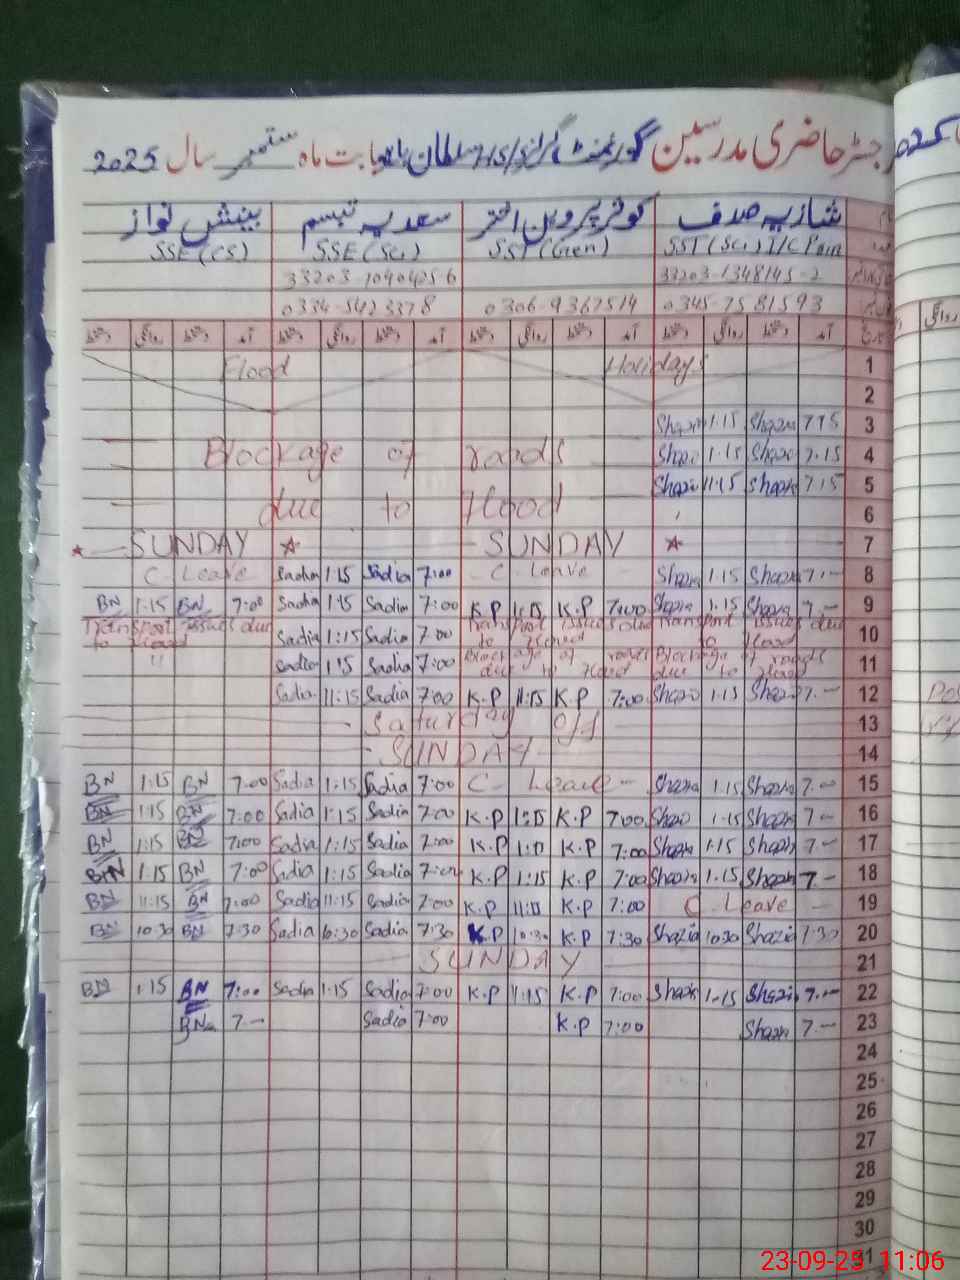 رجسٹر حاضری مدرسین گورنمنٹ گرلز سلطان بابت ماہ ستمبر سال 2025
شازیہ صدف کوثر پروین اختر سعدیہ تبسم بینش نواز
SST (Sci) I/C SST (Gen) SSE (Sci) SSE (CS)
33203-1348145-2 33203-1090425-6
0345-7581593 0306-9367514 0334-5423378
تاریخ آمد دستخط روانگی دستخط آمد دستخط روانگی دستخط آمد دستخط روانگی دستخط آمد دستخط روانگی دستخط
Flood Holidays 1
2
1.15 7.15 3
Blockage of roads 1.15 7.15 4
11.15 7.15 5
due to Flood 6
SUNDAY SUNDAY 7
C Leave Sadia 1:15 Sadia 7:00 C Leave 1.15 7.— 8
BN 1.15 BN 7:00 Sadia 1:15 Sadia 7:00 K.P 1:15 K.P 7:00 1.15 7.— 9
Transport issues due to Flood Sadia 1:15 Sadia 7:00 Transport issues due to Flood Transport issues due to Flood 10
" Sadia 1:15 Sadia 7:00 Blockage of roads due to Flood Blockage of roads due to Flood 11
Sadia 11:15 Sadia 7:00 K.P 11:15 K.P 7:00 1.15 7.— 12
Saturday off 13
SUNDAY 14
BN 1:15 BN 7:00 Sadia 1:15 Sadia 7:00 C- Leave 1.15 7.— 15
BN 1:15 BN 7:00 Sadia 1:15 Sadia 7:00 K.P 1:15 K.P 7:00 1.15 7.— 16
BN 1:15 BN 7:00 Sadia 1:15 Sadia 7:00 K.P 1:15 K.P 7:00 1.15 7.— 17
BN 1:15 BN 7:00 Sadia 1:15 Sadia 7:00 K.P 1:15 K.P 7:00 1.15 7.— 18
BN 11:15 BN 7:00 Sadia 11:15 Sadia 7:00 K.P 11:15 K.P 7:00 C- Leave 19
BN 10:30 BN 7:30 Sadia 10:30 Sadia 7:30 K.P 10:30 K.P 7:30 Shazia 10:30 Shazia 7:30 20
SUNDAY 21
BN 1:15 BN 7:00 Sadia 1:15 Sadia 7:00 K.P 1:15 K.P 7:00 1.15 7.— 22
BN 7.— Sadia 7:00 K.P 7:00 7.— 23
24
25
26
27
28
29
30
31
23-09-25 11:06